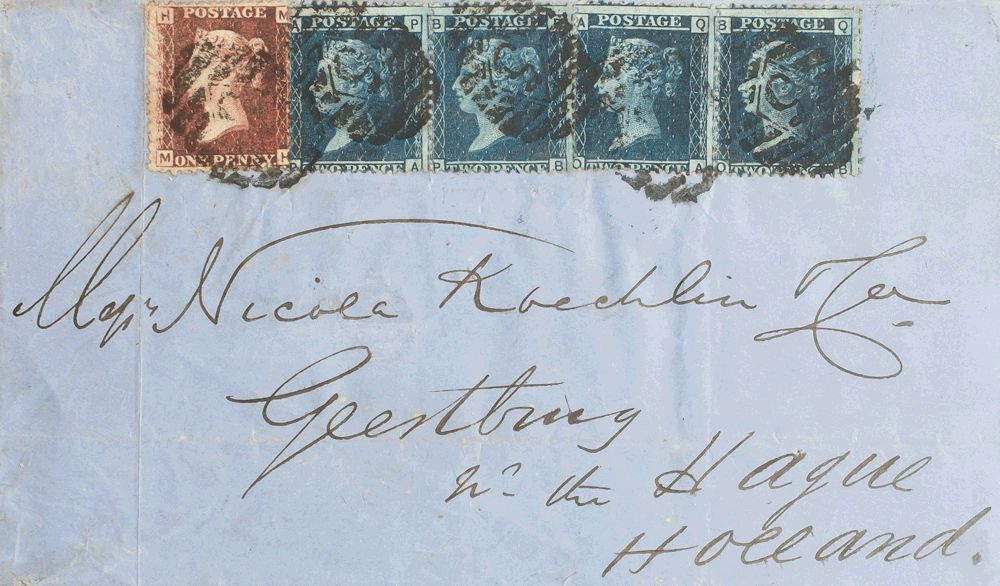 H M
POSTAGE
M H
ONE PENNY
A P
POSTAGE
P A
TWO PENCE
B P
POSTAGE
P B
TWO PENCE
A Q
POSTAGE
Q A
TWO PENCE
B Q
POSTAGE
Q B
TWO PENCE
Messrs Nicola Koechlin &
Geestbrug
nr. the Hague
Holland.